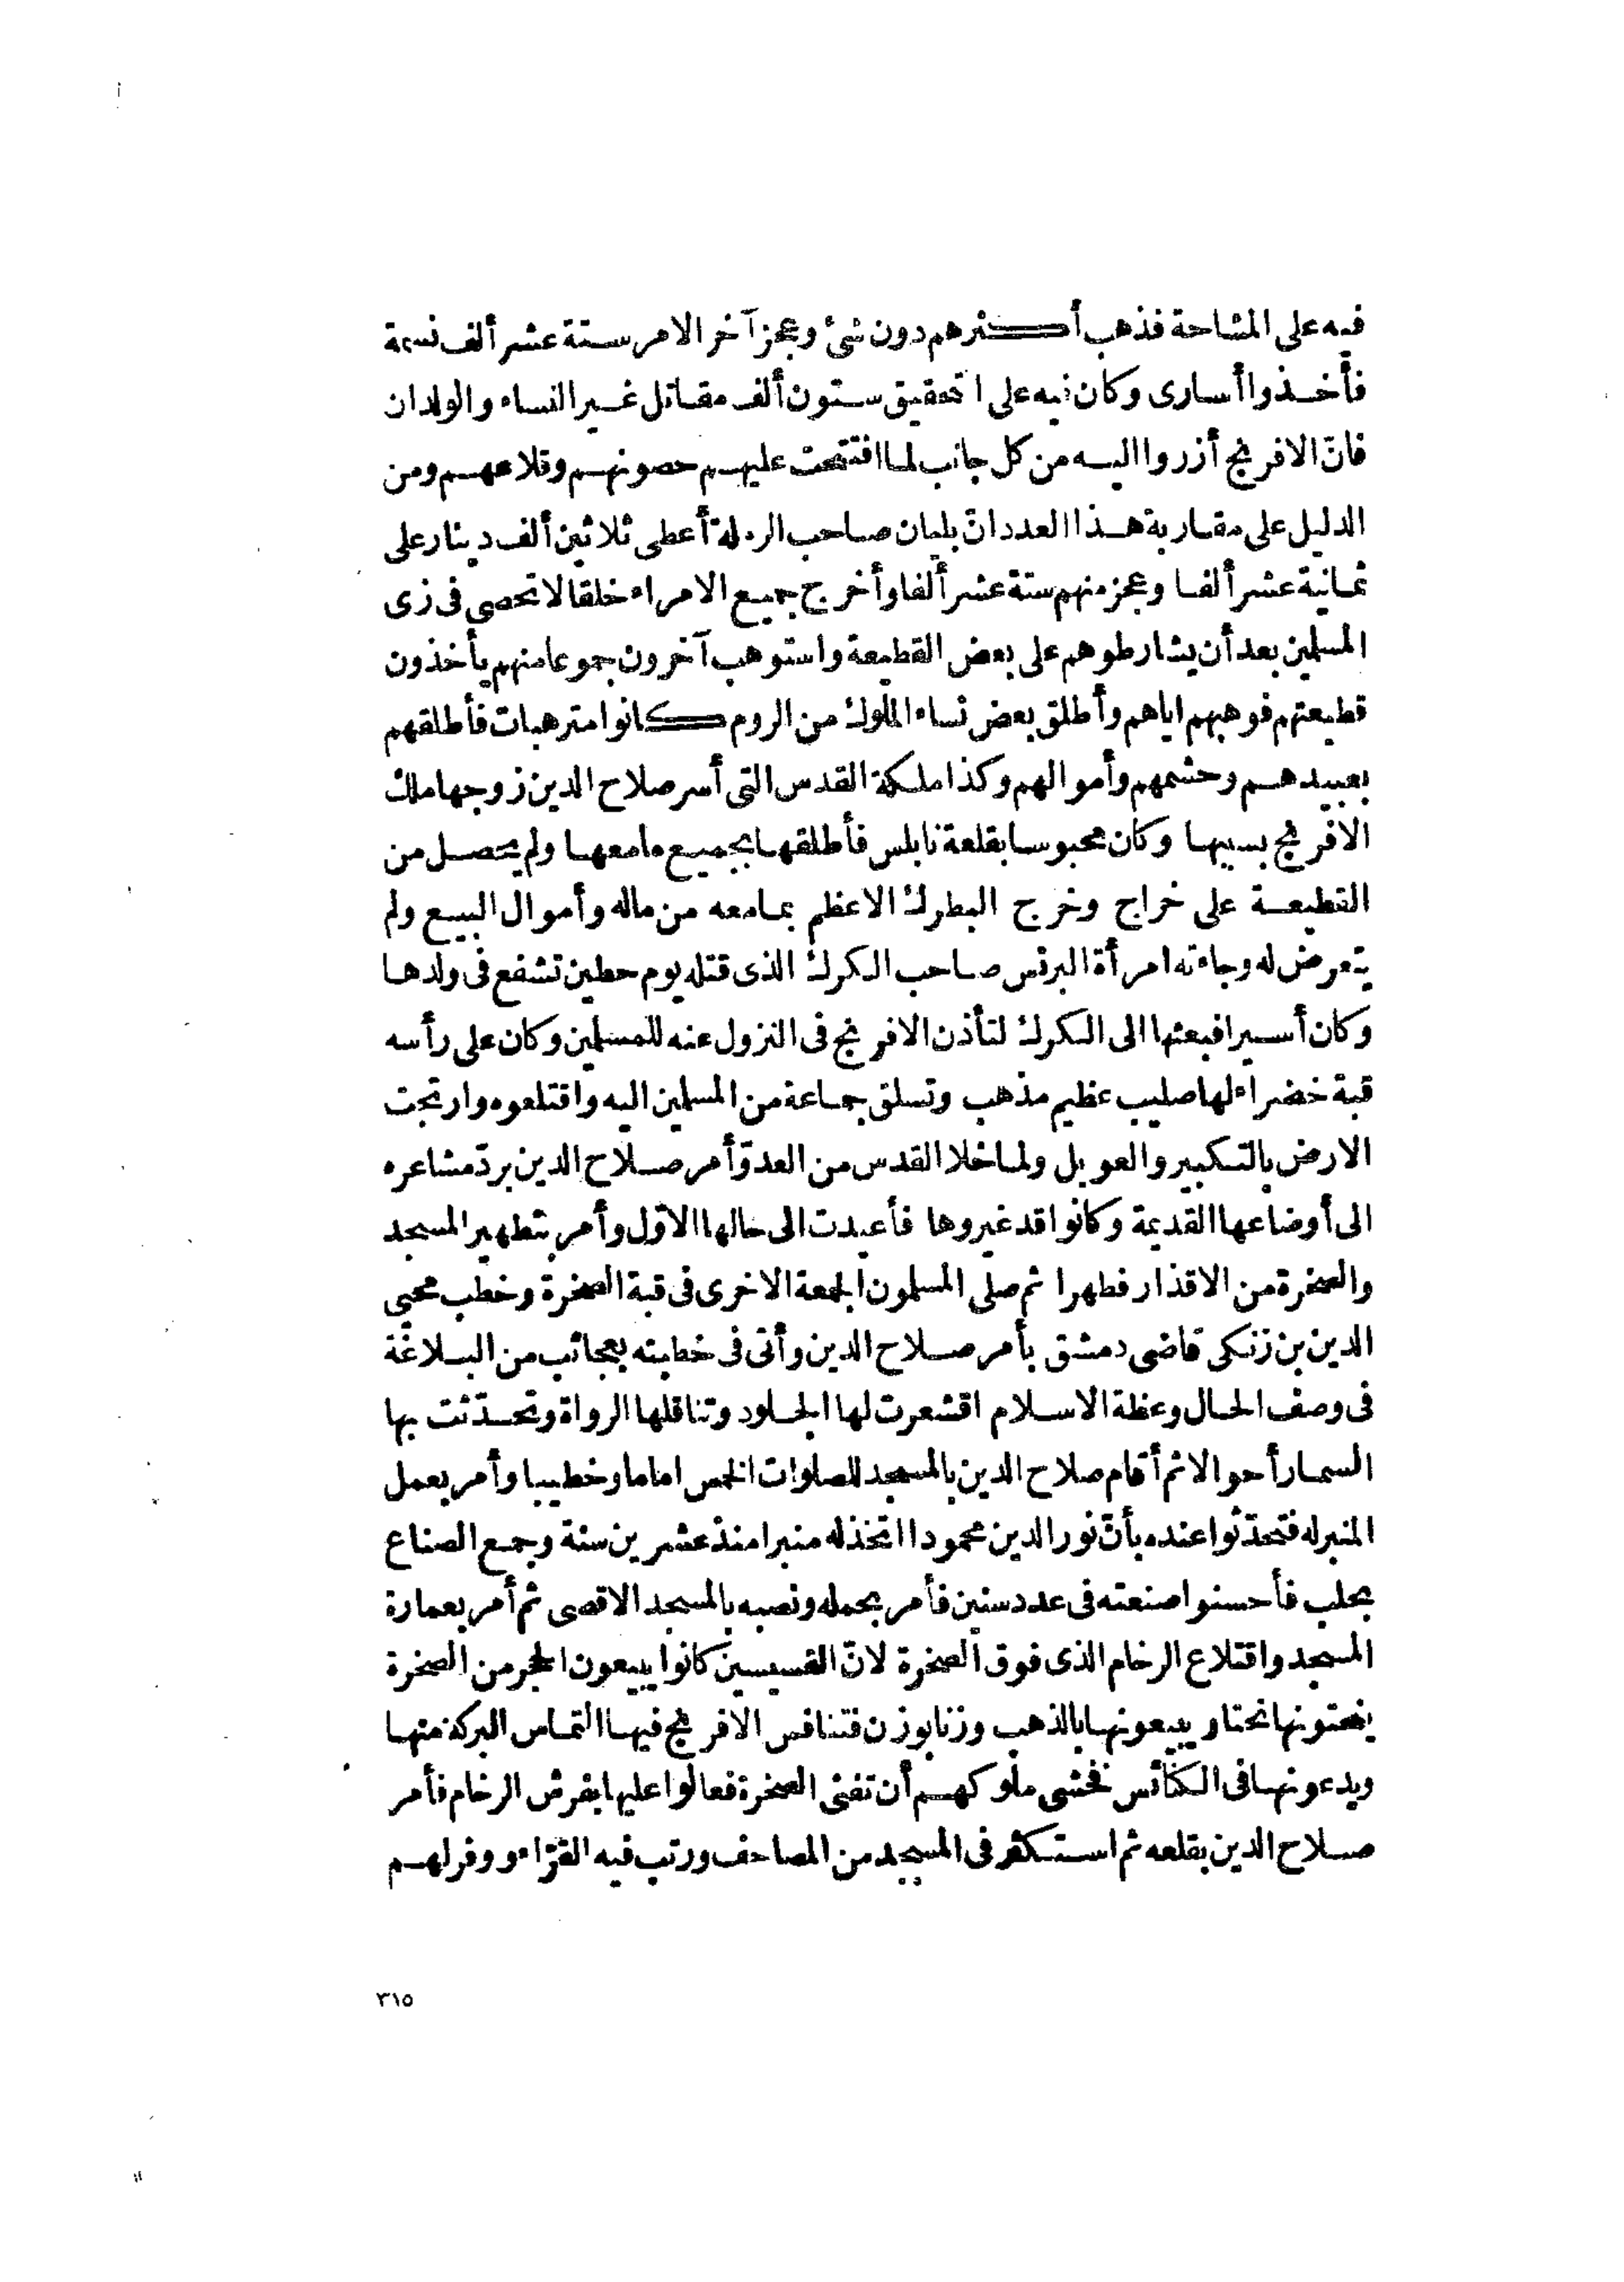 فيه على المشاحة فذهب أكثرهم دون شئ وعجز آخر الامر ستة عشر ألف نسمة
فأخذوا أسارى وكان فيه على التحقيق ستون ألف مقاتل غير النساء والولدان
فانّ الافرنج أزروا اليه من كل جانب لما افتتحت عليهم حصونهم وقلاعهم ومن
الدليل على مقاربة هذا العدد انّ بليان صاحب الرملة أعطى ثلاثين ألف دينار على
ثمانية عشر ألفا وعجز منهم ستة عشر ألفا وأخرج جميع الامراء خلقا لا تحصى فى زى
المسلمين بعد أن يشارطوهم على بعض القطيعة واستوهب آخرون جموعا منهم يأخذون
قطيعتهم فوهبهم اياهم وأطلق بعض نساء الملوك من الروم كانوا مترهبات فأطلقهم
بعبيدهم وحشمهم وأموالهم وكذا ملكة القدس التى أسر صلاح الدين زوجها ملك
الافرنج بسببها وكان محبوسا بقلعة نابلس فأطلقها بجميع ما معها ولم يحصل من
القطيعة على خراج وخرج البطرك الاعظم بما معه من ماله وأموال البيع ولم
يتعرض له وجاءته امرأة البرنس صاحب الكرك الذى قتله يوم حطين تشفع فى ولدها
وكان أسيرا فبعثها الى الكرك لتأذن الافرنج فى النزول عنه للمسلمين وكان على رأسه
قبة خضراء لها صليب عظيم مذهب وتسلق جماعة من المسلمين اليه واقتلعوه وارتجت
الارض بالتكبير والعويل ولما خلا القدس من العدوّ أمر صلاح الدين بردّ مشاعره
الى أوضاعها القديمة وكانوا قد غيروها فأعيدت الى حالها الاوّل وأمر بتطهير المسجد
والصخرة من الاقذار فطهرا ثم صلى المسلمون الجمعة الاخرى فى قبة الصخرة وخطب محيى
الدين بن زنكى قاضى دمشق بأمر صلاح الدين وأتى فى خطبته بعجائب من البلاغة
فى وصف الحال وعظة الاسلام اقشعرت لها الجلود وتناقلها الرواة وتحدّثت بها
السمار أحوالا ثم أقام صلاح الدين بالمسجد للصلوات الخمس اماما وخطيبا وأمر بعمل
المنبر له فتحدّثوا عنده بأنّ نور الدين محمودا اتخذ له منبرا منذ عشرين سنة وجمع الصناع
بحلب فأحسنوا صنعته فى عدد سنين فأمر بحمله ونصبه بالمسجد الاقصى ثم أمر بعمارة
المسجد واقتلاع الرخام الذى فوق الصخرة لانّ القسيسين كانوا يبيعون الحجر من الصخرة
ينحتونها نحتا ويبيعونها بالذهب وزنا بوزن فتنافس الافرنج فيها التماس البركة منها
ويدعونها فى الكنائس فخشى ملوكهم أن تفنى الصخرة فعالوا عليها بفرش الرخام فأمر
صلاح الدين بقلعه ثم استكثر فى المسجد من المصاحف ورتب فيه القرّاء ووفر لهم
٣١٥